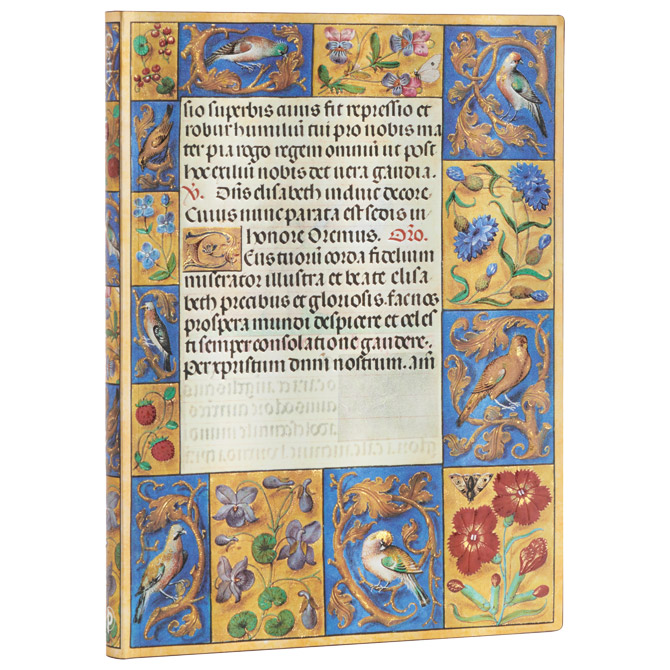 sio superbis cuius fit repressio et
robur humiliū tu pro nobis ma
ter pia rogo regem omniū ut post
hoc exiliū nobis det vera gaudia.
V. Diis elisabeth induit decore.
Cuius nunc parata est sedis in
honore Oremus. Oro.
Deus tuorū corda fidelium
miserator illustra et beate elisa
beth precibus et gloriosis. fac nos
prospera mundi despicere et celes
ti semper consolatione gaudere.
Per xpristum dnm̄ nostrum. am̄